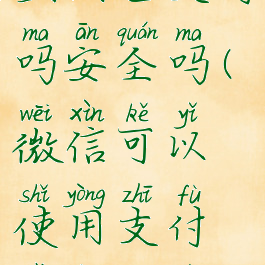 ma ān quán ma
吗安全吗(
wēi xìn kě yǐ
微信可以
shǐ yòng zhī fù
使用支付